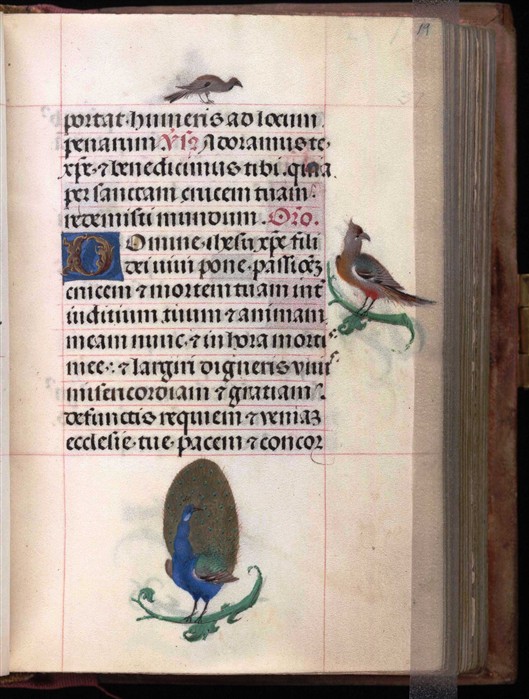 portat humeris ad locum
penarum Vs Adoramus te
xpe ⁊ benedicimus tibi quia
per sanctam crucem tuam
redemisti mundum. Oro.
Domine ihesu xpe fili
dei uiui pone passioēz
crucem ⁊ mortem tuam int
iuditium tuum ⁊ animam
meam nunc ⁊ in hora morti
mee ⁊ largiri digneris viui
misericordiam ⁊ gratiam
defunctis requiem ⁊ veniaz
ecclesie tue pacem ⁊ concor